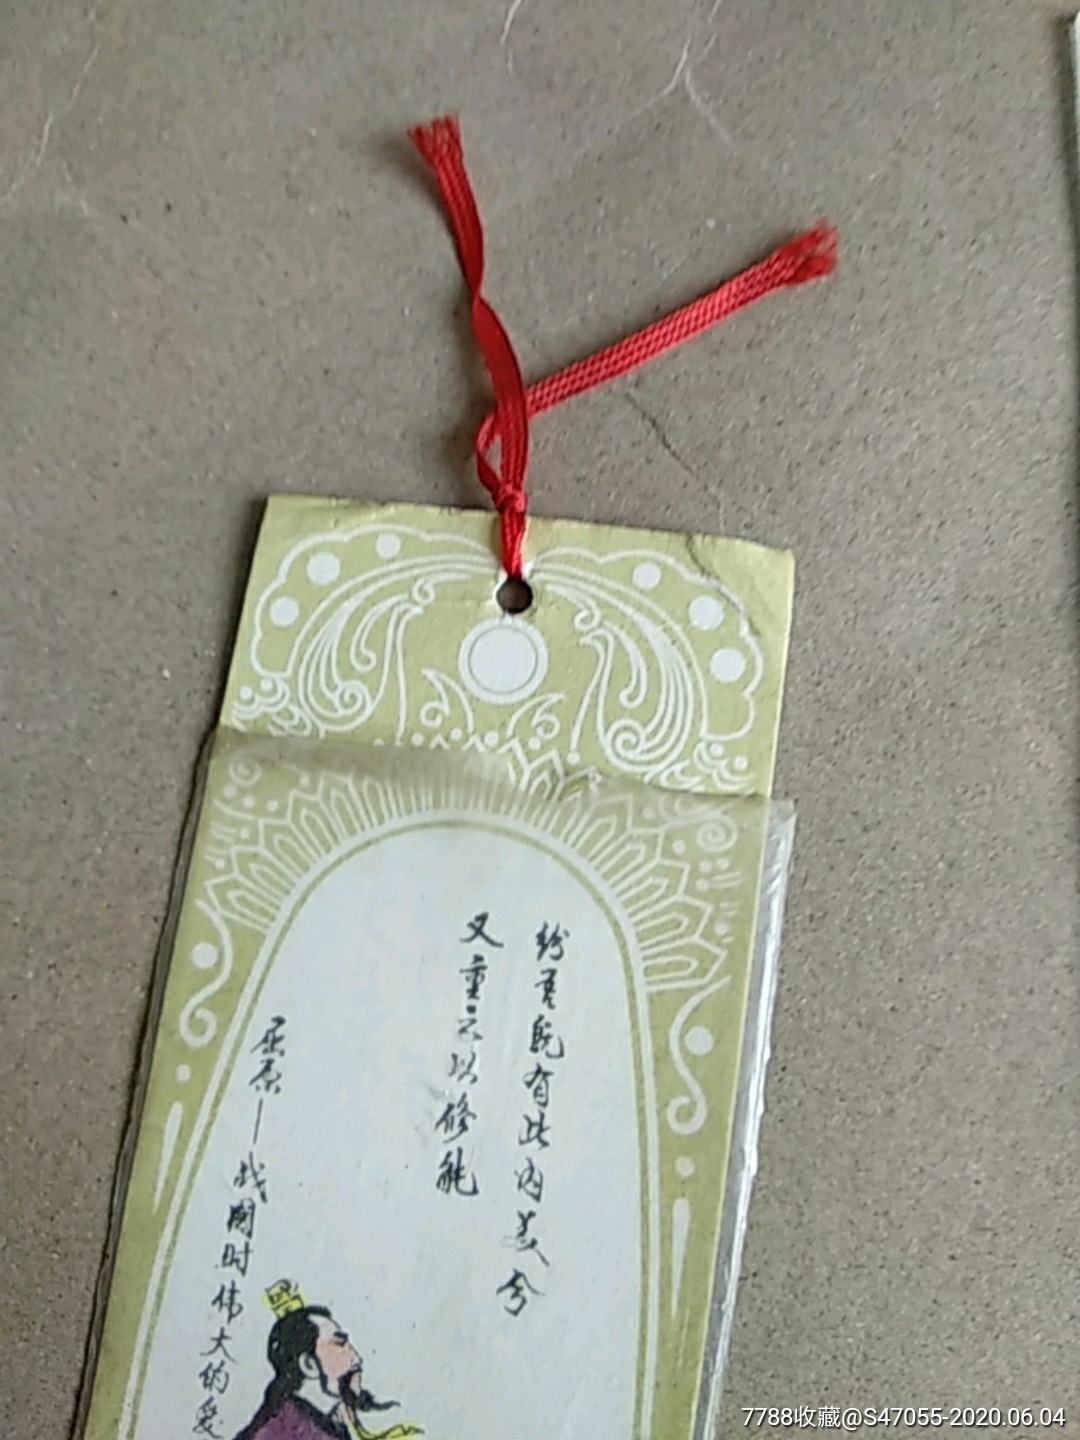 纷吾既有此内美兮
又重之以修能
屈原—战国时伟大的爱
7788收藏@S47055-2020.06.04